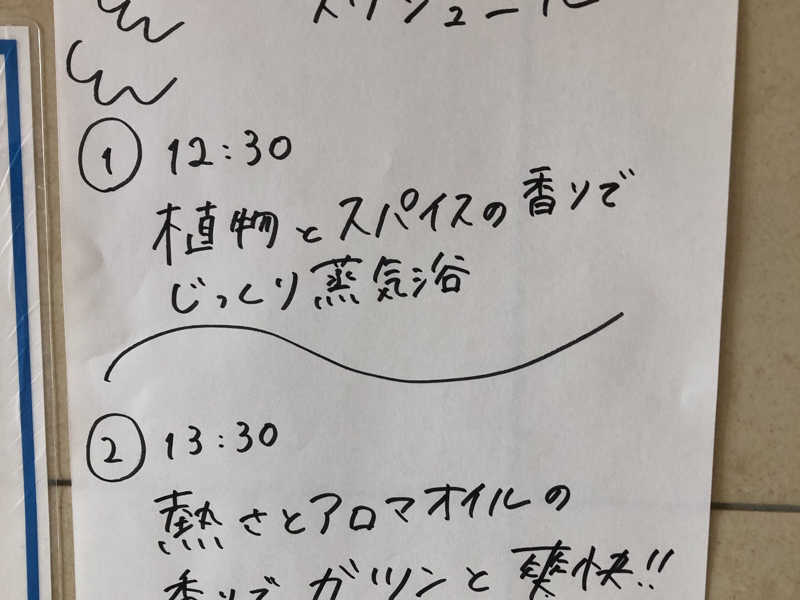 スケジュール
① 12:30
植物とスパイスの香りで
じっくり蒸気浴
② 13:30
熱さとアロマオイルの
香りでガツンと爽快!!